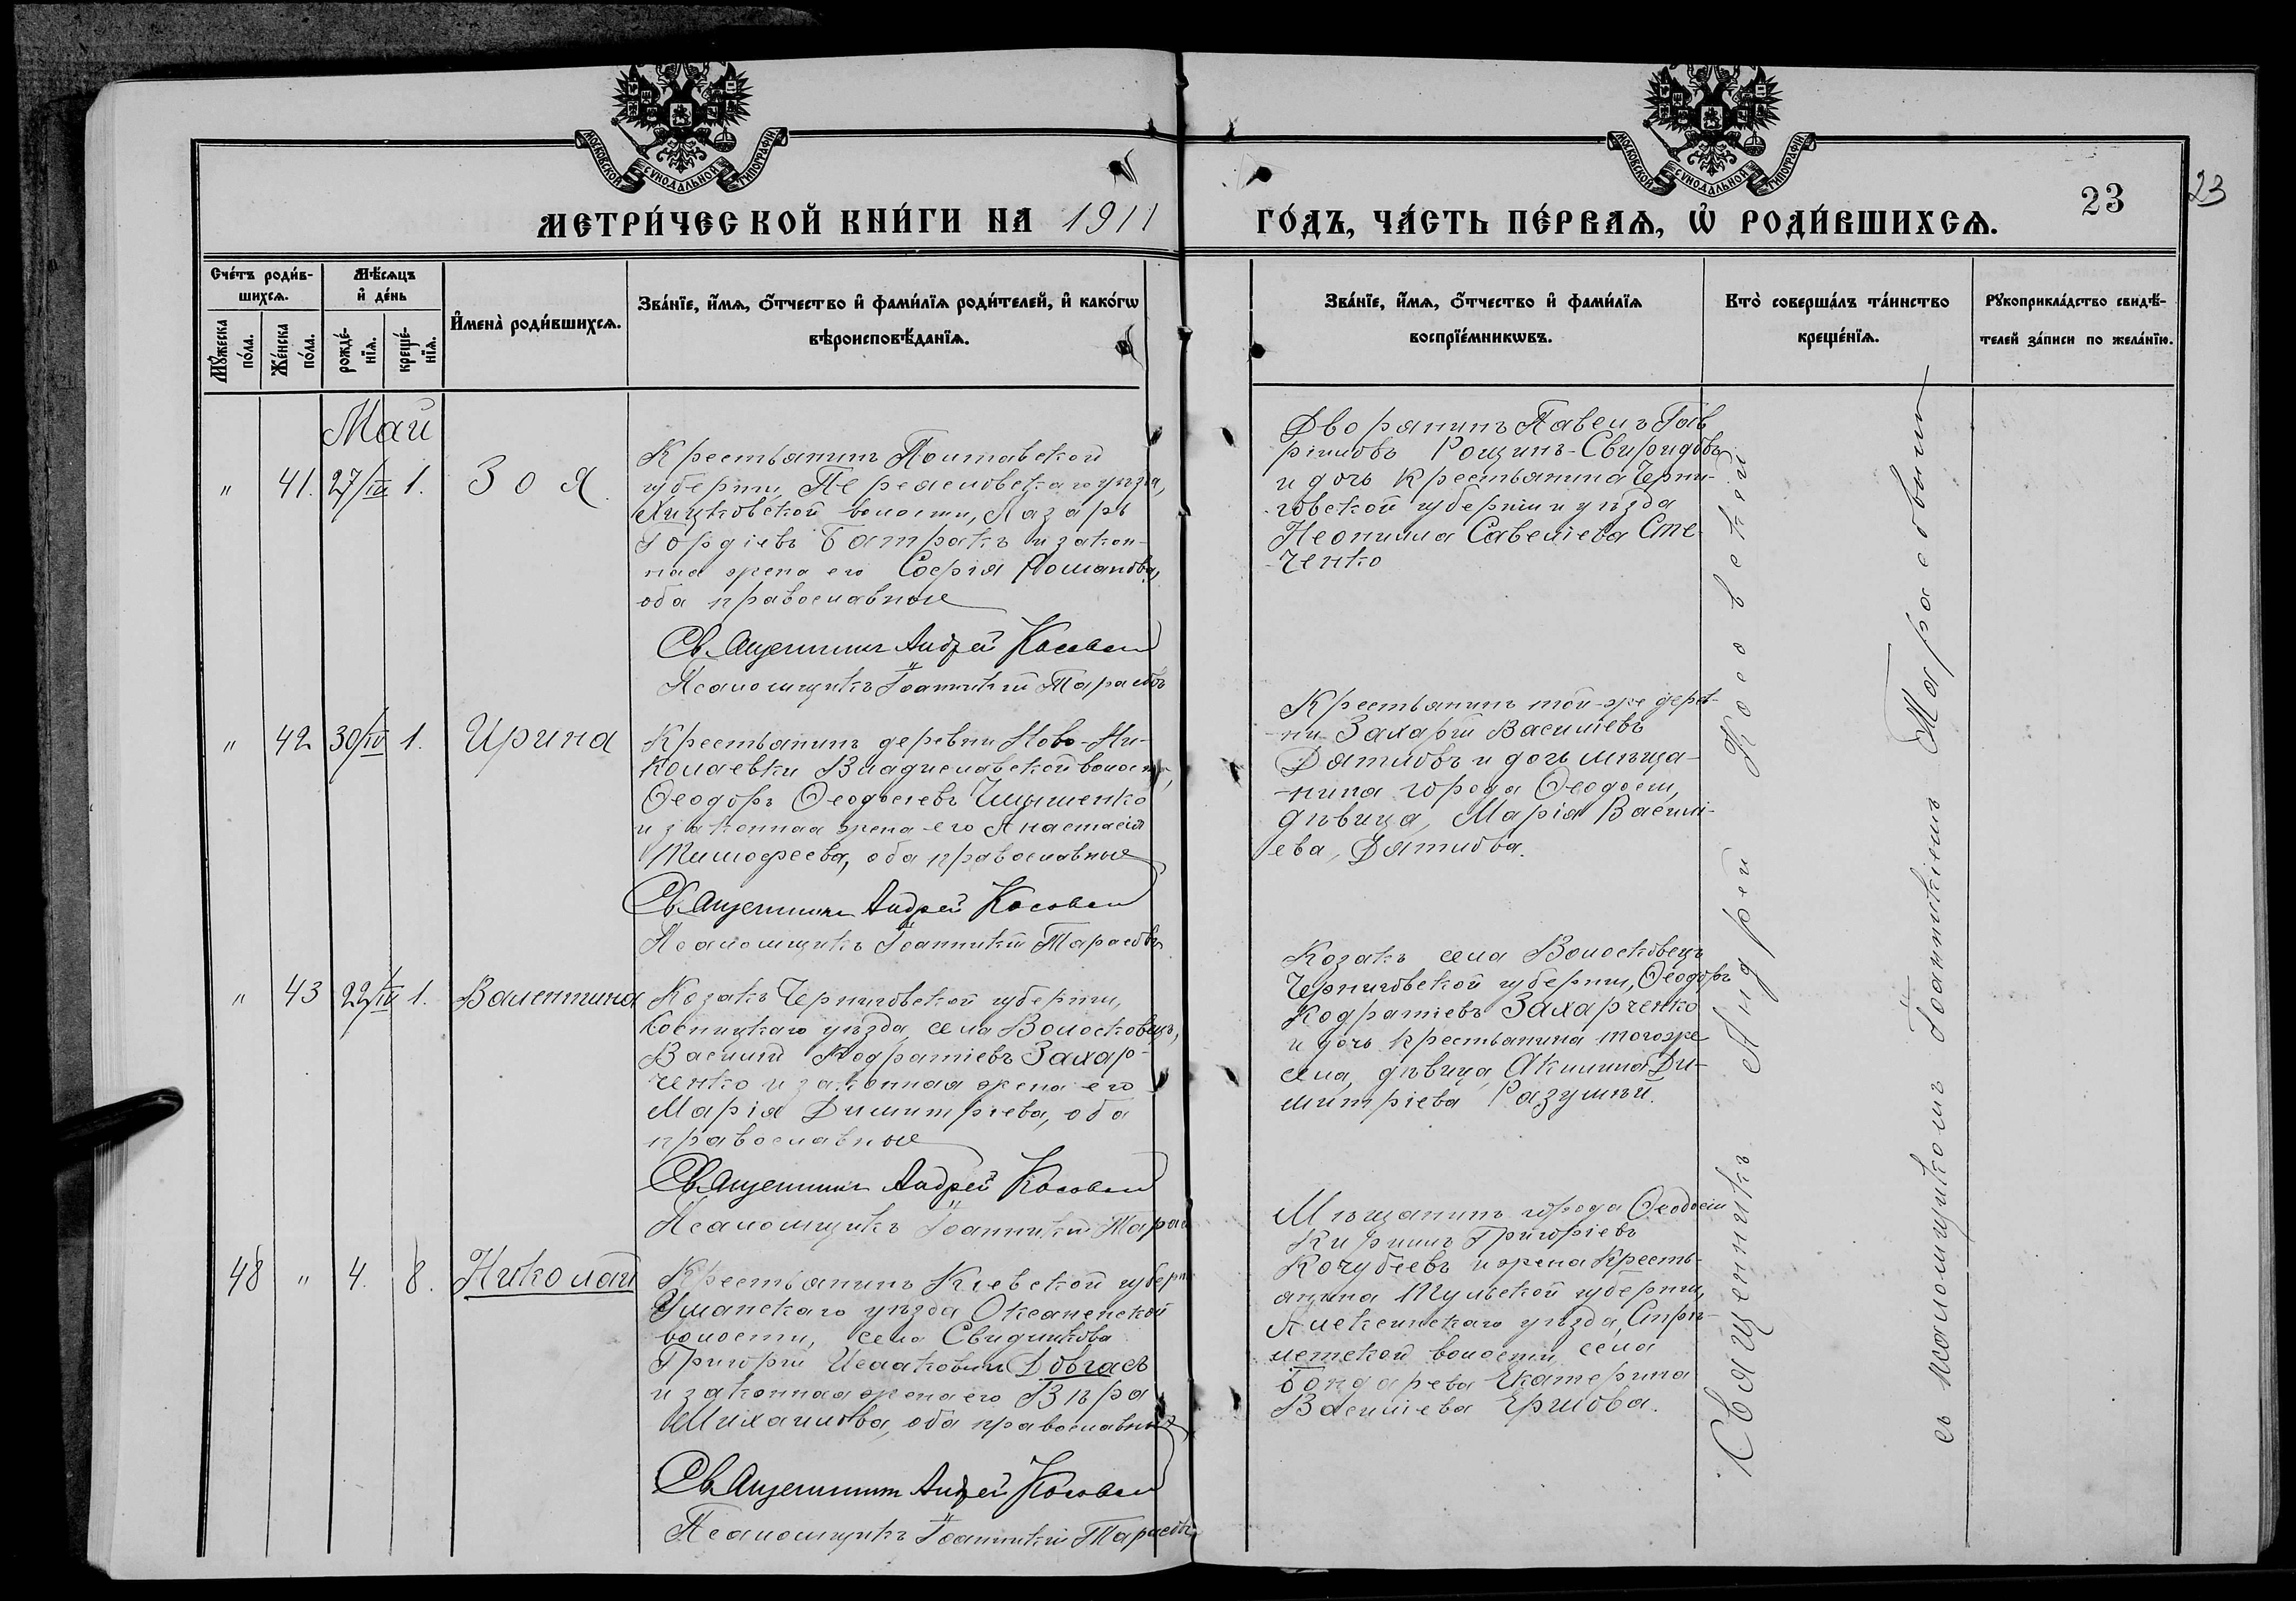 МОСКОВСКОЙ СУНОДАЛЬНОЙ ТИПОГРАФІИ
МОСКОВСКОЙ СУНОДАЛЬНОЙ ТИПОГРАФІИ
МЕТРИ́ЧЕСКОЙ КНИ́ГИ НА 1911
ГО́ДЪ, ЧА́СТЬ ПЕ́РВАѦ, Ѡ҆ РОДИ́ВШИХСѦ.
23
23
Сче́тъ роди́в-
шихсѧ.
Мѣ́сѧцъ
и҆ де́нь
Мꙋ́жеска
по́ла.
Же́нска
по́ла.
рожде́-
нїѧ.
креще́-
нїѧ.
И҆мена̀ роди́вшихсѧ.
Зва́нїе, и҆́мѧ, ѻ҆́тчество и҆ фами́лїѧ роди́телей, и҆ како́гѡ
вѣроисповѣ́данїѧ.
Зва́нїе, и҆́мѧ, ѻ҆́тчество и҆ фами́лїѧ
воспрїе́мникѡвъ.
Кто̀ соверша́лъ та́инство
креще́нїѧ.
Рꙋкоприкла́дство свидѣ́-
телей за́писи по жела́нїю.
Май
" 41. 27/IV 1. Зоя.
Крестьянинъ Полтавской
губерніи, Переяславскаго уѣзда,
волости, Лазарь
Гордіевъ Батракъ и закон-
ная жена его Софія Романова,
оба православные
Священникъ Андрей Косовскій
Псаломщикъ Іоанникій Тарасовъ
Дворянинъ Павелъ Гав
ріиловъ Рощинъ-Свиридовъ
и дочь крестьянина Черни-
говской губерніи и уѣзда
Неонилла Савеліева Сте-
ченко
" 42 30/IV 1. Ирина
Крестьянинъ деревни Ново-Ни-
колаевки Владиславской волости,
Ѳеодоръ Ѳеодосіевъ
и законная жена его Анастасія
Тимоѳеева, оба православные
Священникъ Андрей Косовскій
Псаломщикъ Іоанникій Тарасовъ
Крестьянинъ той-же дерев-
ни Захарій Василіевъ
Дятловъ и дочь мѣща-
нина города Ѳеодосіи,
дѣвица, Марія Васили-
ева, Дятлова.
" 43 22/IV 1. Валентина
Козакъ Черниговской губерніи,
Сосницкаго уѣзда, села Волосковецъ,
Василій Кодратіевъ Захар-
ченко и законная жена его
Марія Димитріева, оба
православные
Священникъ Андрей Косовскій
Псаломщикъ Іоанникій Тарас
Козакъ села Волосковецъ
Черниговской губерніи, Ѳеодоръ
Кодратіевъ Захарченко
и дочь крестьянина тогоже
села, дѣвица Акилина Ди-
митріева Разумный.
48 " 4. 8. Николай
Крестьянинъ Кіевской губерн
Уманскаго уѣзда
волости, села Свидинкова
Григорій Исааковичъ Довгаевъ
и законная жена его Вѣра
Михаилова, оба православные
Священникъ Андрей Косовскій
Псаломщикъ Іоанникій Тарасовъ
Мѣщанинъ города Ѳеодосіи
Кириллъ Григоріевъ
Кочубеевъ и жена кресть-
янина Тульской губерніи,
Алексинскаго уѣзда, Стрѣ-
лецкой волости села
Бондарева Екатерина
Василіева Ершова.
Священникъ Андрей Косовскій
съ псаломщикомъ Іоанникіемъ Тарасовымъ